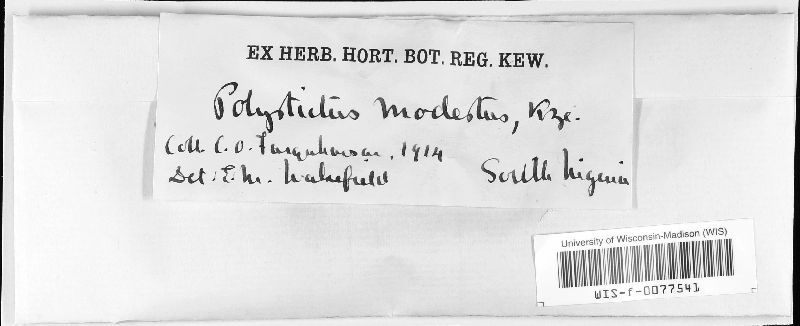 EX HERB. HORT. BOT. REG. KEW.
Polystictus modestus, Kze.
Coll. C. O. Farquharson, 1914
Det: E. M. Wakefield
South Nigeria
University of Wisconsin-Madison (WIS)
WIS-f-0077541